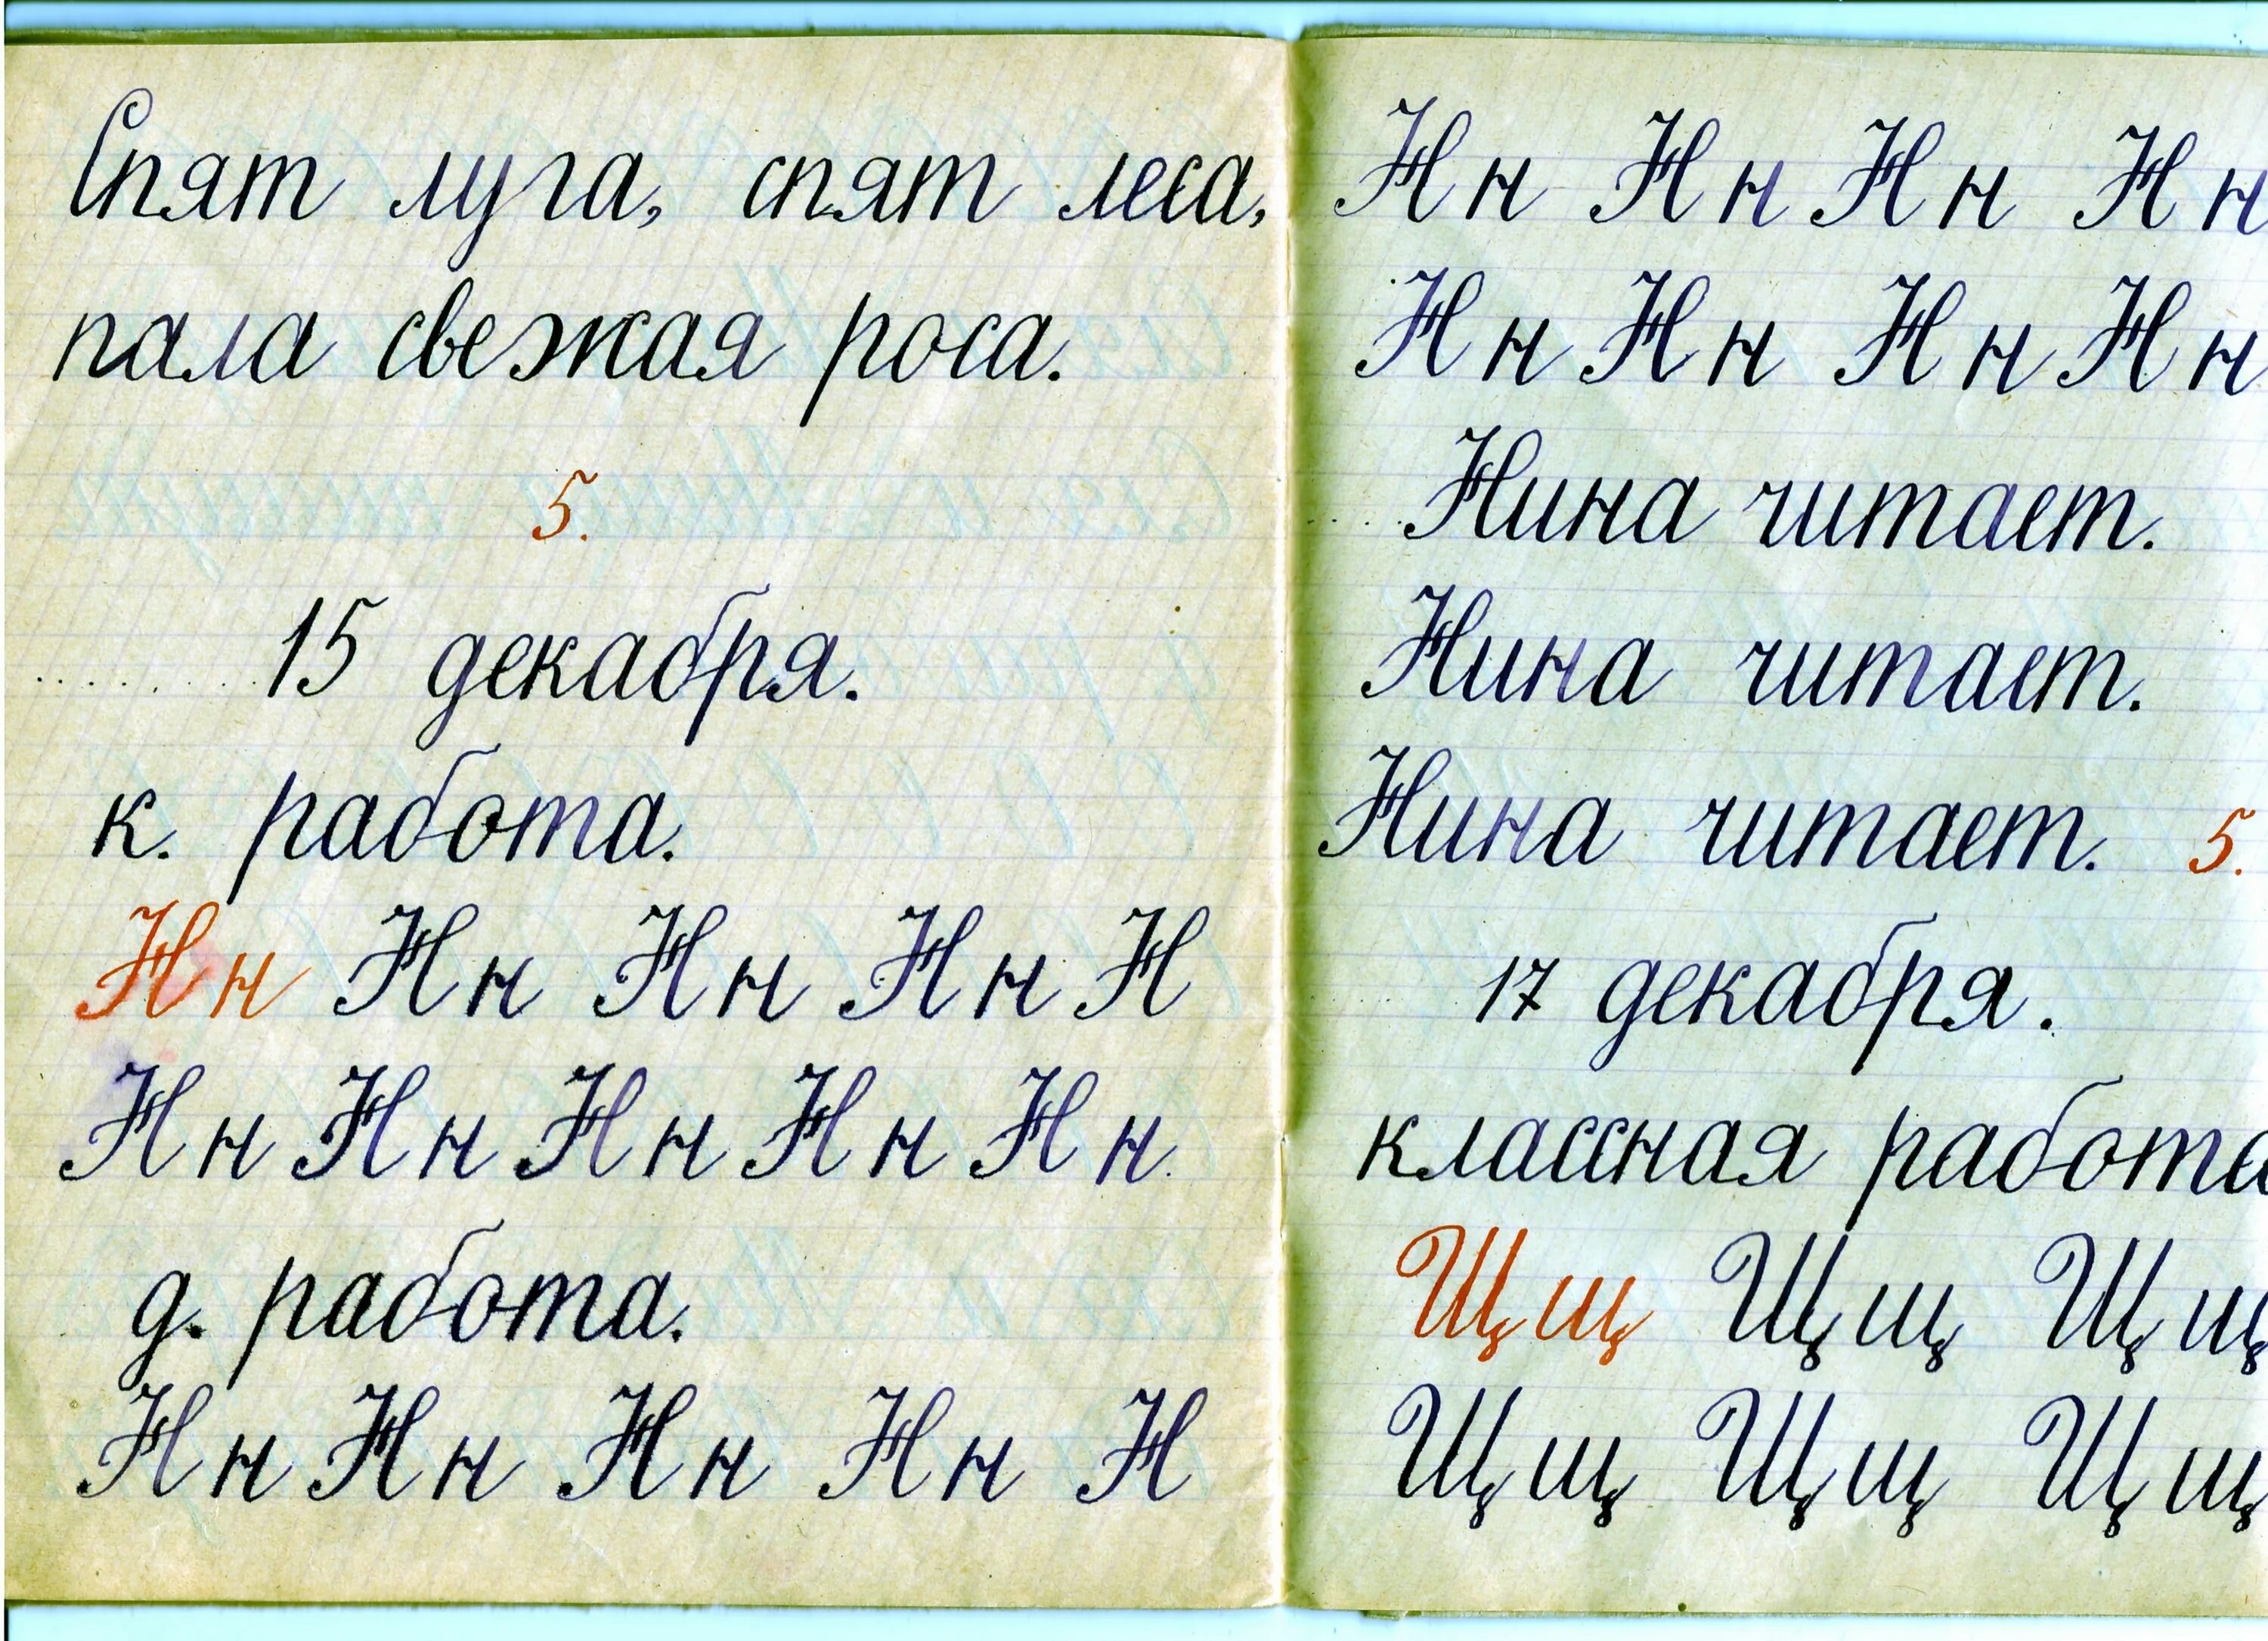 Спят луга, спят леса,
пала свежая роса.
5.
15 декабря.
к. работа.
Нн Нн Нн Нн Н
Нн Нн Нн Нн Нн
д. работа.
Нн Нн Нн Нн Н
Нн Нн Нн Нн
Нн Нн Нн Нн
Нина читает.
Нина читает.
Нина читает. 5.
17 декабря.
классная работа
Щщ Щщ Щщ
Щщ Щщ Щщ